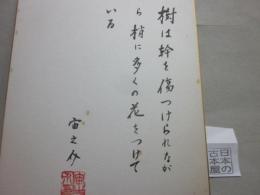 樹は幹を傷つけられなが
ら梢に多くの花をつけて
いる
宙之介
日本の
古本屋